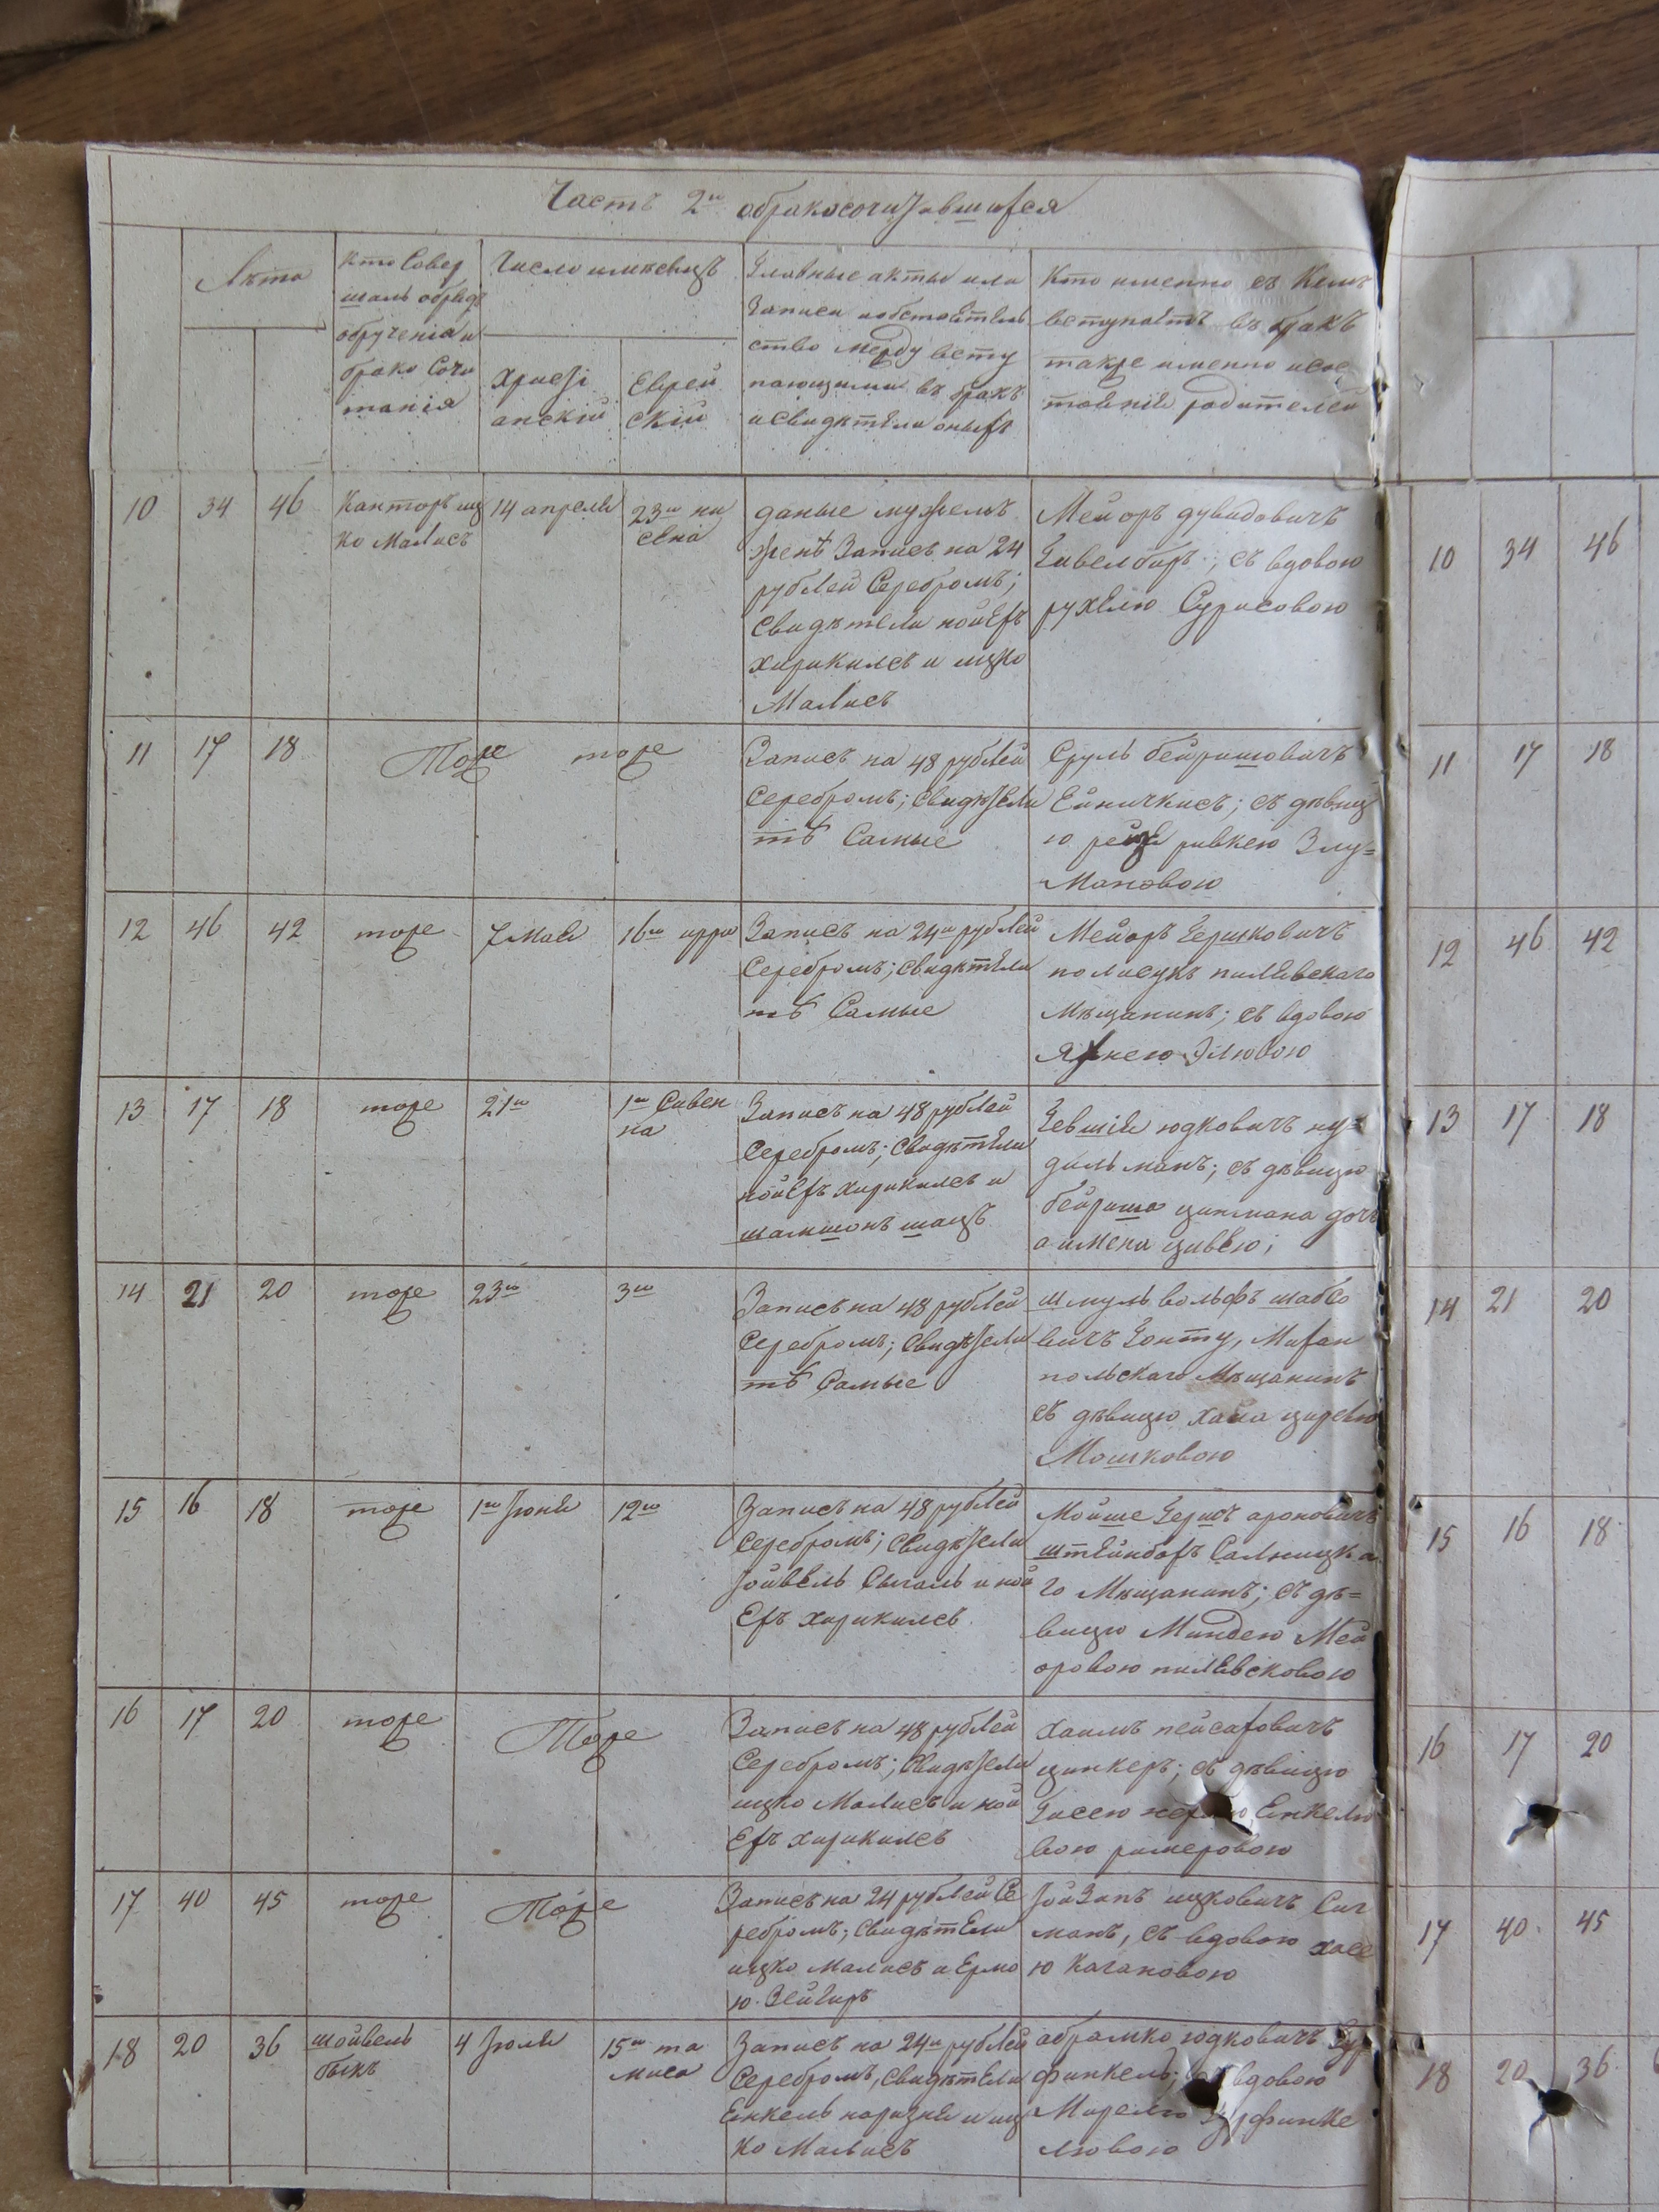 Часть 2я обракосочитавшихся
Лѣта
Кто Совер
шалъ обрядъ
обрученія и
брако Сочи
танія
Число имѣсецъ
Христі
анскій
Еврей
скій
Главные акты или
Записи иобстоятель
ство между всту
пающими въ бракъ
и Свидѣтели оныхъ
Кто именно съ Кемъ
вступаетъ въ бракъ
также именно исос
тояніе родителей
10 34 46
Канторъ иц
ко Малисъ
14 апреля
23го ни
сена
даные мужемъ
женѣ Запись на 24
рублей Серебромъ;
Свидѣтели
хирикилсъ и ицко
Малисъ
Мейоръ дувидовичъ
съ вдовою
рухлею Сурисовою
11 17 18
Тоже тоже
Запись на 48 рублей
Серебромъ; Свидѣтели
тѣ Самые
Сруль бейришовичъ
съ дѣвиц
ю ривкею Злу=
Мановою
12 46 42
тоже
7 Мая
16го ирра
Запись на 24и рублей
Серебромъ; Свидѣтели
тѣ Самые
Мейоръ Гершковичъ
полисукъ пилявскаго
Мѣщанинъ; съ вдовою
Элювою
13 17 18
тоже
21го
1го Сивен
на
Запись на 48 рублей
Серебромъ; Свидѣтели
хирикилсъ и
шамшонъ шацъ
Гевшія юдковичъ ну=
дильманъ; съ дѣвицю
бейриша ципмана доч
а имени цивею;
14 21 20
тоже
23го
3го
Запись на 48 рублей
Серебромъ; Свидѣтели
тѣ Самые
шмуль вольфъ шабсо
вичъ Гонту, Михан
польскаго Мѣщанинъ
съ дѣвицю хана цирею
Мошковою
15 16 18
тоже
1го Іюня
12го
Запись на 48 рублей
Серебромъ; Свидѣтели
и ной
ехъ хирикилсъ
Мойше Гершъ ароновичъ
штейнбохъ Салницка
го Мѣщанинъ; съ дѣ=
вицю Миндею Мей
оровою пилявсковою
16 17 20
тоже
Тоже
Запись на 48 рублей
Серебромъ; Свидѣтели
ицко Малисъ и ной
ехъ хирикилсъ
хаимъ пейсаховичъ
цинкеръ; съ дѣвицю
Гисею Енкелю
вою римеровою
17 40 45
тоже
Тоже
Запись на 24 рублей Се
ребромъ; Свидѣтели
ицко Малисъ и Ермо
ю Зейгиръ
ицковичъ Сиг
манъ, съ вдовою хасе
ю Кагановою
18 20 36
шойвель
быкъ
4 Іюля
15го та
миса
Запись на 24и рублей
Серебромъ, Свидѣтели
Енкель и иц
ко Малисъ
абрамко юдковичъ Гур
финкель; вдовою
Мирелю Гурфинке
лювою
10 34 46
11 17 18
12 46 42
13 17 18
14 21 20
15 16 18
16 17 20
17 40 45
18 20 36